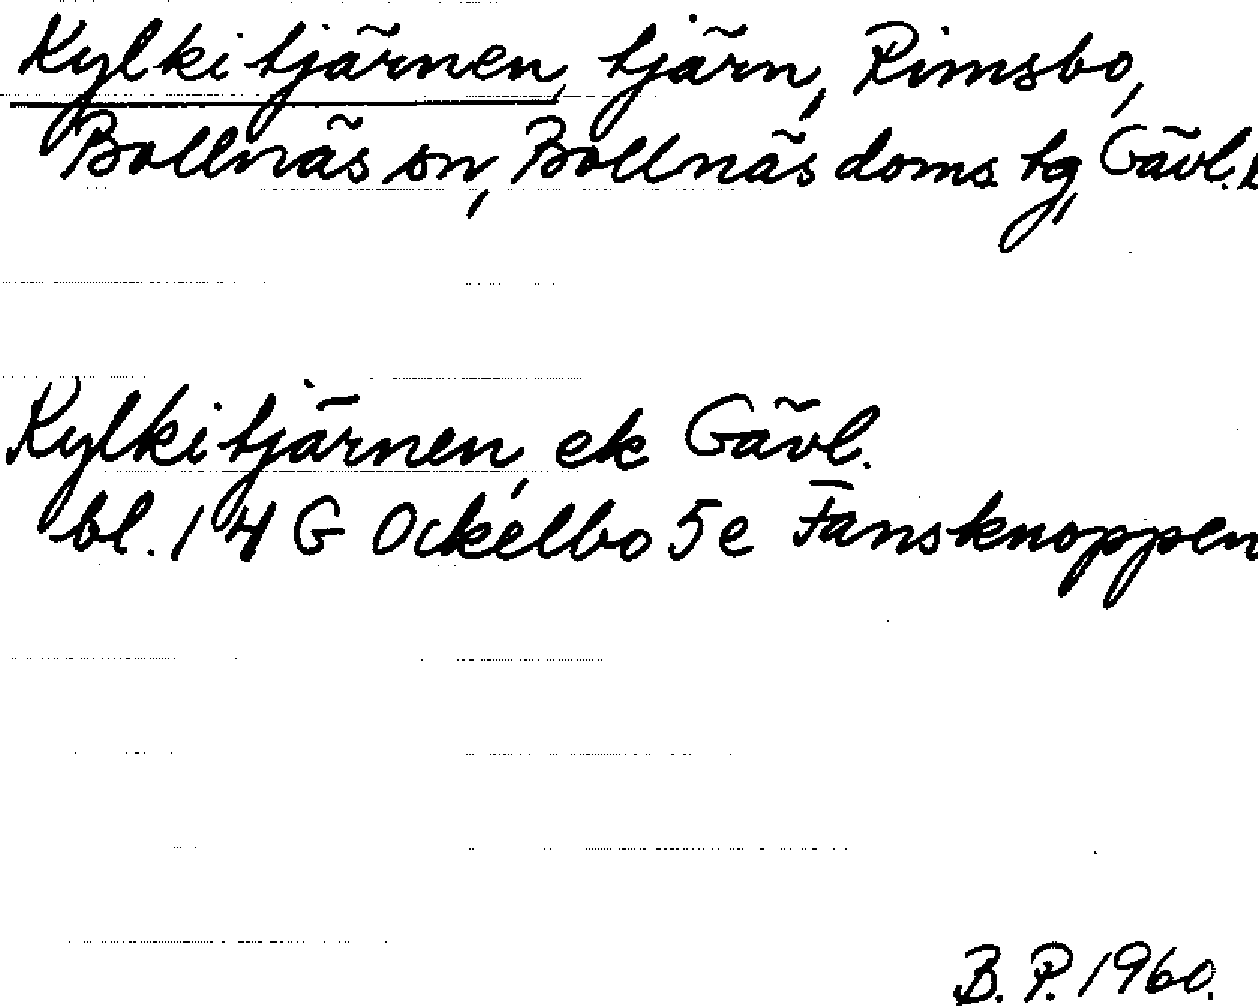 Kylkitjärnen, tjärn, Rimsbo,
Bollnäs sn, Bollnäs doms. tg, Gävl.
Kylkitjärnen, ek Gävl.
bl. 14 G Ockelbo 5e Fånsknoppen
B. P. 1960.